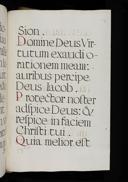 Sion.
Domine Deus Vir-
tutum exaudi o-
rationem meam:
auribus percipe
Deus Iacob.
Protector noster
adspice Deus: &
respice in faciem
Christi tui.
Quia melior est